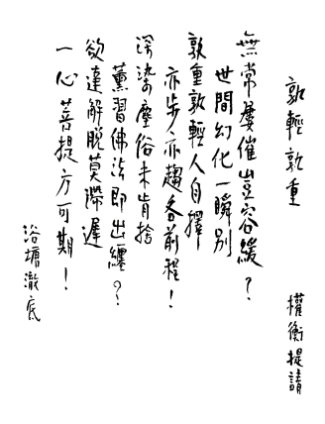 孰輕孰重
權衡提請
無常屢催豈容緩？
世間幻化一瞬別
孰重孰輕人自擇
亦步亦趨各前程！
深染塵俗未肯捨
薰習佛法即出纏？
欲速解脫莫滯遲
一心菩提方可期！
浴塘澈底